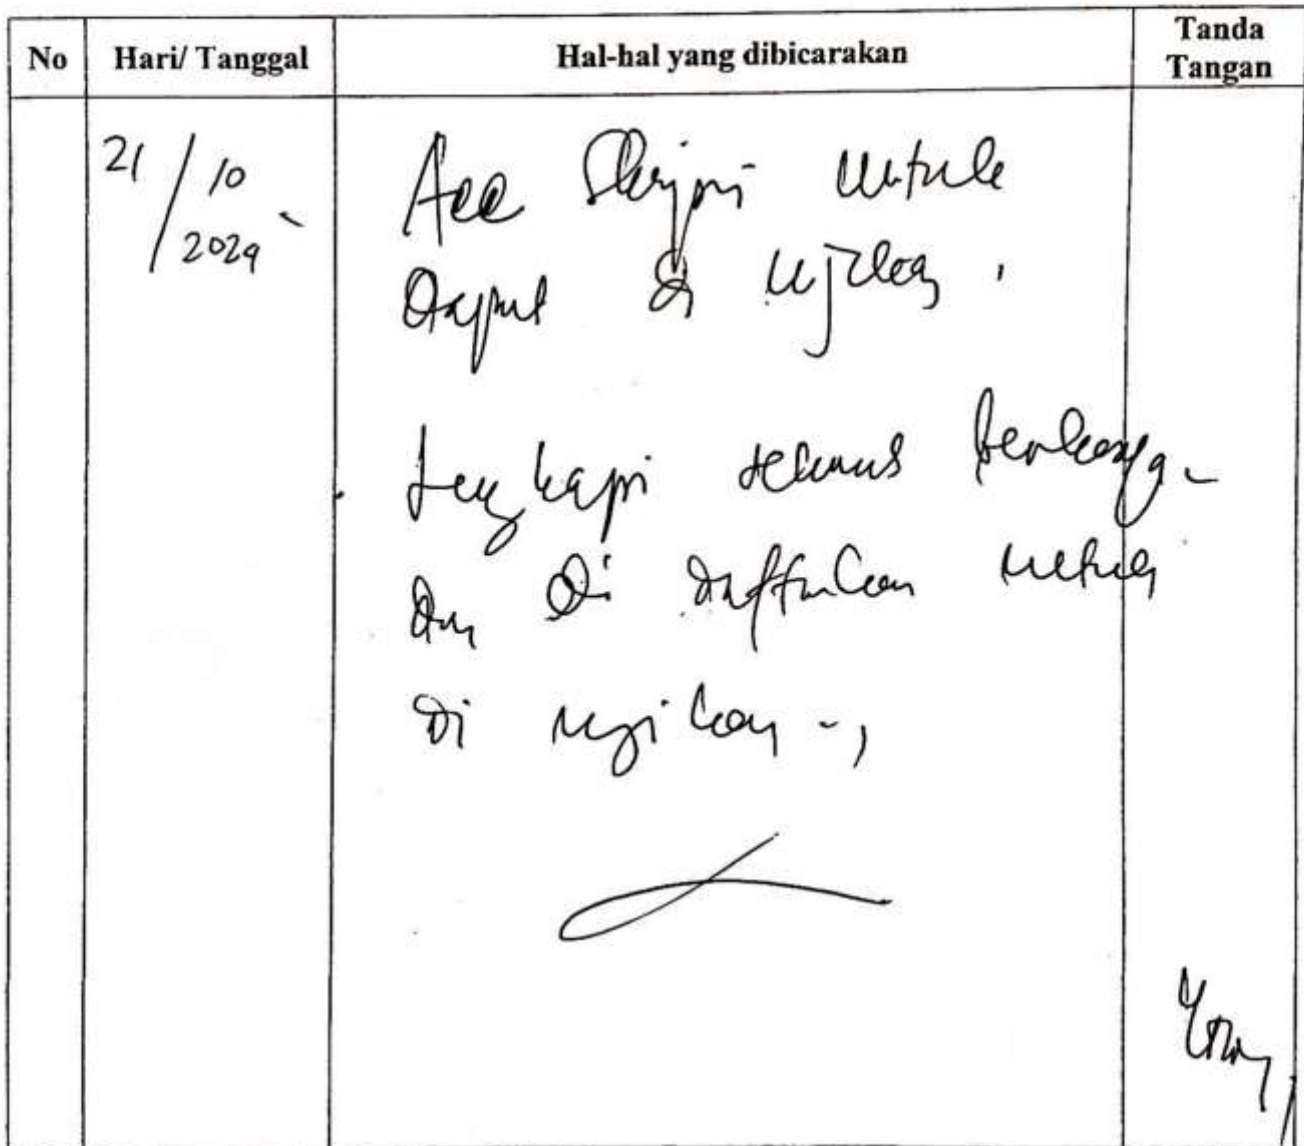 No Hari/ Tanggal Hal-hal yang dibicarakan Tanda Tangan
21/10 2024
Acc Skripsi untuk
Dapat di ujikan,
Lengkapi semua berkasnya-
dan di daftarkan untuk
di ujikan -,